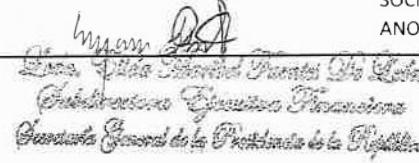 SOCI
ANO
Licda. Gilda Maribel Fuentes De León
Subdirectora Ejecutiva Financiera
Secretaría General de la Presidencia de la República